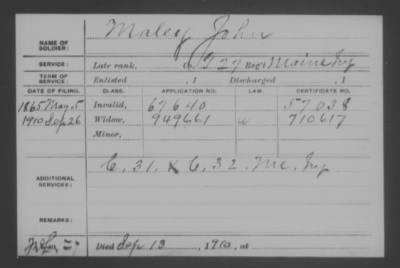 NAME OF SOLDIER: Maley John
SERVICE: Late rank, Co. G 27 Reg't Maine Inf
TERM OF SERVICE: Enlisted , 1 Discharged , 1
DATE OF FILING. CLASS. APPLICATION NO. LAW. CERTIFICATE NO.
1865 May 5 Invalid, 67640 57038
1910 Sep 26 Widow, 949661 710617
Minor,
ADDITIONAL SERVICES: C. 31. & C. 32. Me. Inf
REMARKS:
Died Sep 13, 1910, at